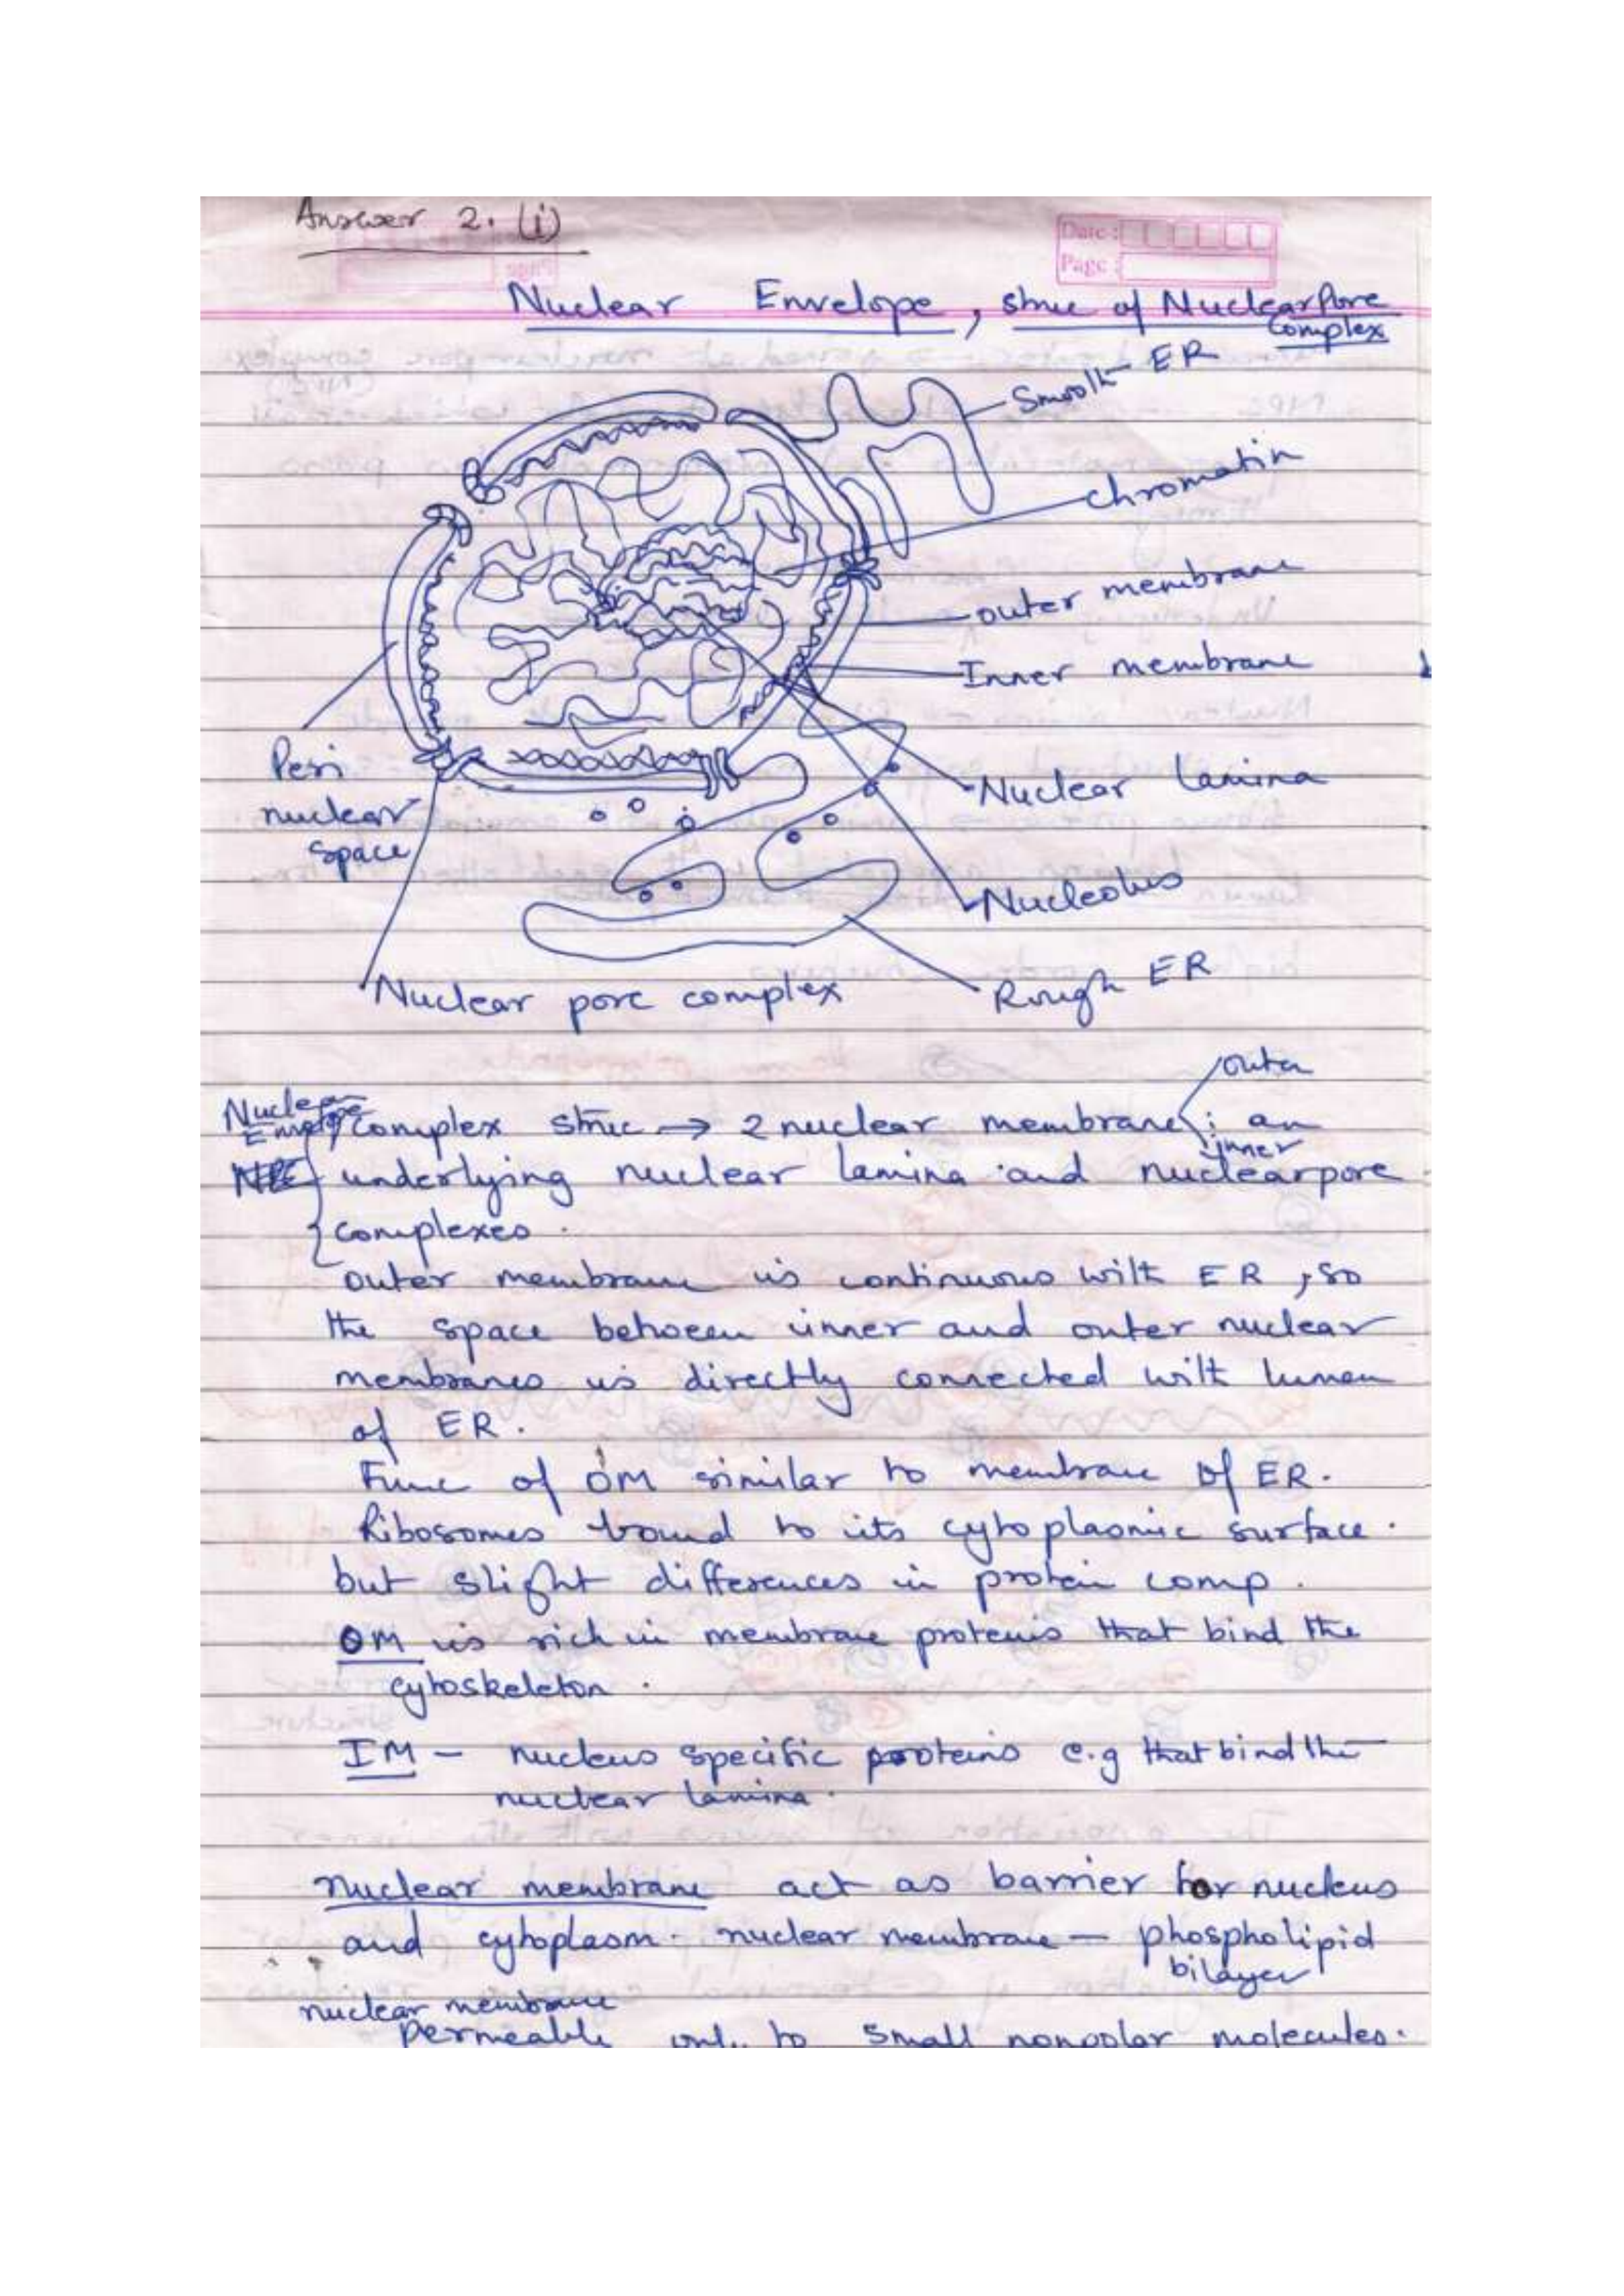 Answer 2. (i)
Date :
Page :
Nuclear Envelope, struc of Nuclear Pore
Complex
Smooth ER
chromatin
outer membrane
Inner membrane
Peri
nuclear
space
Nuclear lamina
Nucleolus
Nuclear pore complex
Rough ER
outer
Nuclear
Envelope complex struc → 2 nuclear membrane : an
inner
underlying nuclear lamina and nuclearpore
complexes.
outer membrane is continuous with ER, so
the space between inner and outer nuclear
membranes is directly connected with lumen
of ER.
Func of OM similar to membrane of ER.
Ribosomes bound to its cytoplasmic surface.
but slight differences in protein comp.
OM is rich in membrane proteins that bind the
cytoskeleton.
IM - nucleus specific proteins e.g that bind the
nuclear lamina.
nuclear membrane act as barrier for nucleus
and cytoplasm. nuclear membrane - phospholipid
bilayer
nuclear membrane
permeable only to small nonpolar molecules.